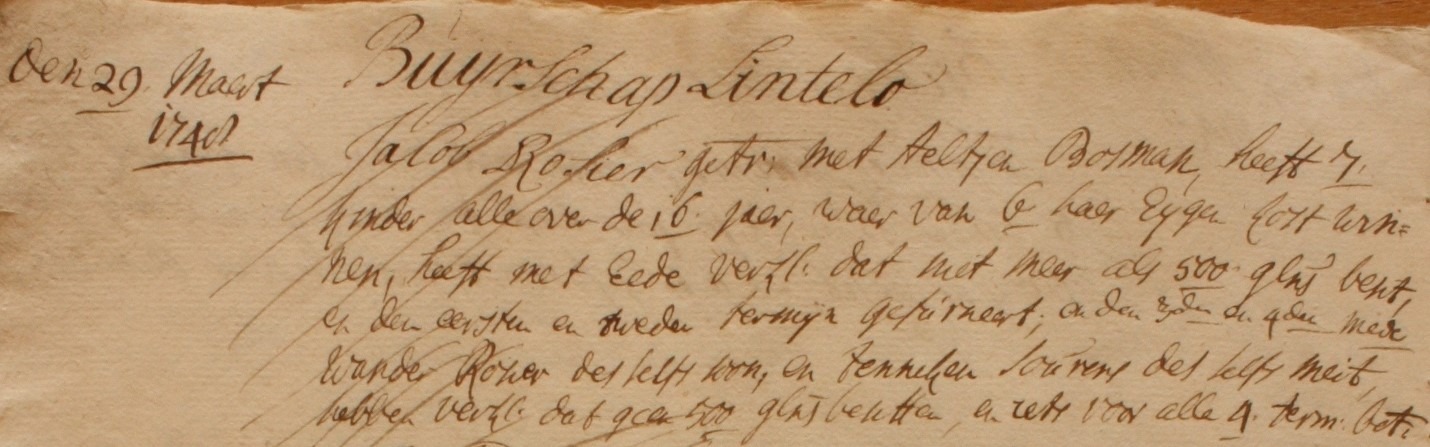 Den 29 Maert
1748
Buyrschap Lintelo
Jacob Rosier getr. met Aeltjen Bosman, heeft 7
kinder alle over de 16 jaer, waer van 6 haer Eygen kost win=
nen, heeft met Eede verkl. dat niet meer als 500 glns besit,
en den eersten en tweden termijn gefurneert, en den 3den en 4den mede
Wander Rosier deszelfs soon, en Jenneken Lourens des selfs meit,
hebben verkl. dat geen 500 glns besitten, en iets voor alle 4 term. bet.